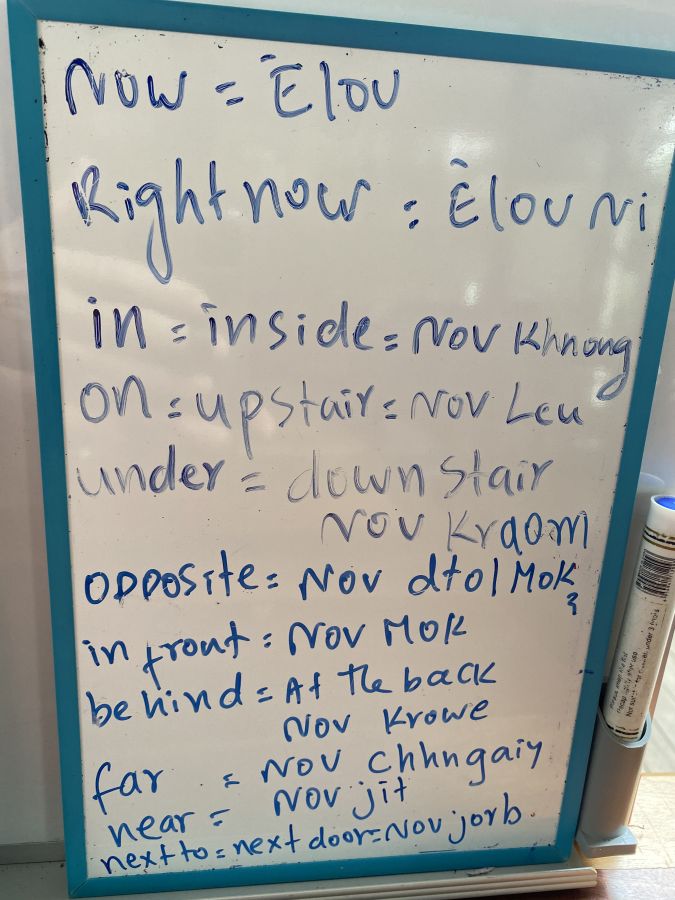 Now = Élou
Right now : Èlou Ni
in = inside = Nov Khnong
on = upstair = Nov Leu
under = down stair
Nov Kraom
opposite = Nov dtol Mok
in front : Nov Mok
behind = At the back
Nov Krowe
far = Nov Chhngaiy
near = Nov jit
next to = next door = Nov jorb.